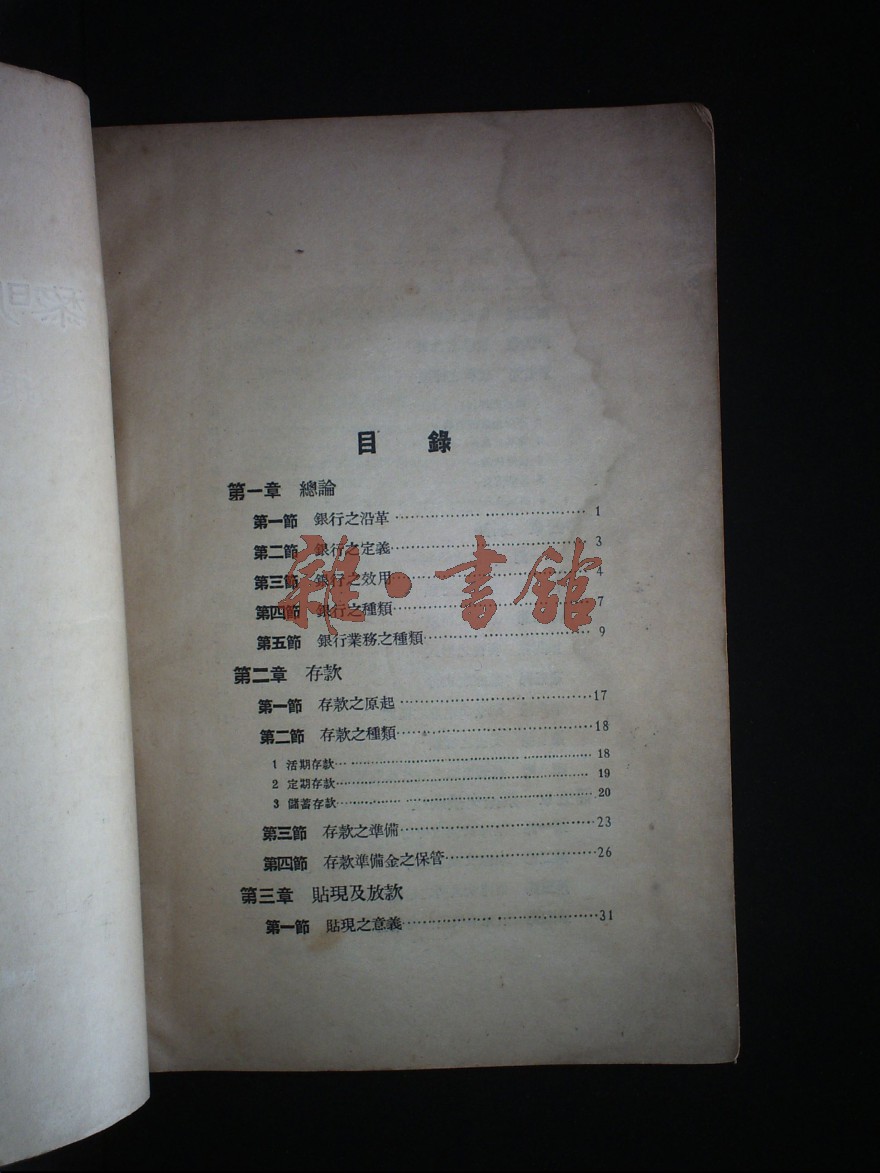 目 錄
第一章 總論
第一節 銀行之沿革 1
第二節 銀行之定義 3
第三節 銀行之效用 4
第四節 銀行之種類 7
第五節 銀行業務之種類 9
第二章 存款
第一節 存款之原起 17
第二節 存款之種類 18
1 活期存款 18
2 定期存款 19
3 儲蓄存款 20
第三節 存款之準備 23
第四節 存款準備金之保管 26
第三章 貼現及放款
第一節 貼現之意義 31
雜·書館